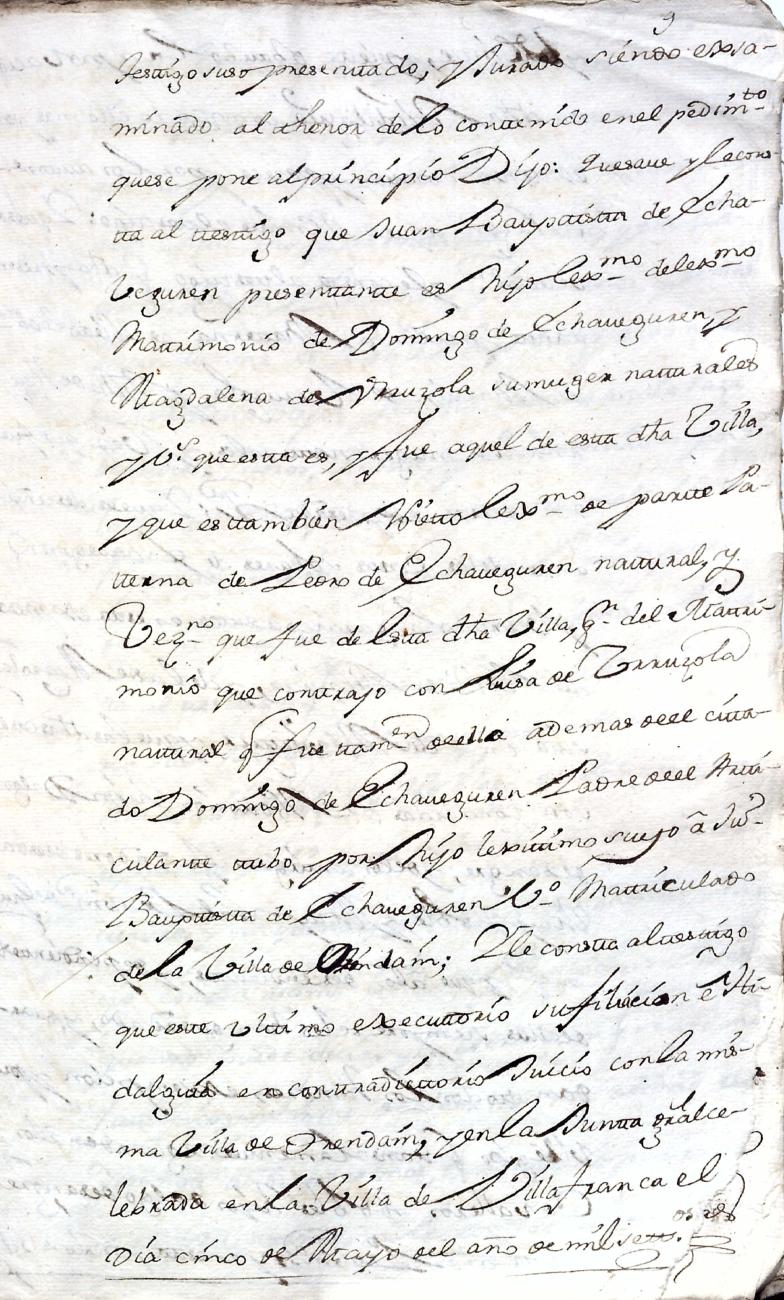 9
testigo suso presentado, y Jurado siendo exsa-
minado al thenor de lo contenido en el pedim.to
que se pone al principio Dijo: que saue y le cons
ta al testigo que Juan Bauptista de Echa-
veguren presentante es hijo lexmo del exmo
Matrimonio de Domingo de Echaueguren, y
Magdalena de Urruzola su muger naturales
y V.s que esta es, y fue aquel de esta dha Villa,
y que es tambien Nietto lexmo de partte Pa-
tterna de Pedro de Echaueguren nattural, y
Vezno que fue de esta dha Villa, qn del Mattri-
monio que contrajo con Luisa de Urruzola
nattural q fue tamn de ella ademas de el citta-
do Domingo de Echaueguren Padre de el Artti-
culante tubo por hijo lexitimo suyo a Jun
Baupttista de Echaueguren Vo Mattriculado
de la Villa de Orendain; Y le consta al testigo
que este Ulttimo executtorio su filiacion e Hi-
dalguia en contradicttorio Juicio con la mis-
ma Villa de Orendain, y en la Juntta gral ce-
lebrada en la Villa de Villafranca el
Dia cinco de Mayo del año de mil setts.